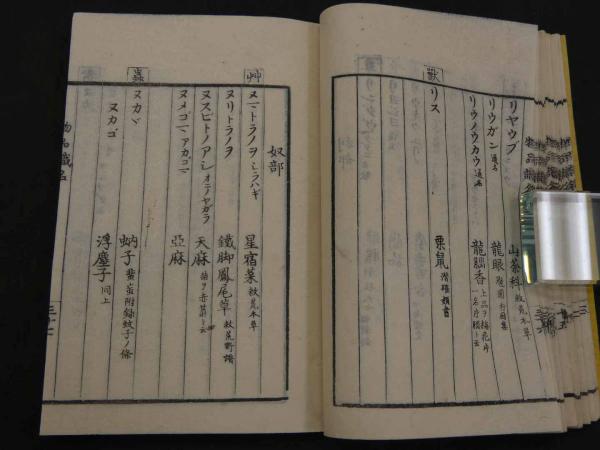 リヤウブ 山茶科 救荒本草
リウガン 通名 龍眼
リウノウカウ 通名 龍腦香 上品ヲ梅花片
獸
リス 栗鼠
奴部
艸
ヌマトラノヲ シラハギ 星宿菜 救荒本草
ヌリトラノヲ 鐵脚鳳尾草 救荒野譜
ヌスビトノアシ オニノヤガラ 天麻
ヌメゴマ アカゴマ 亞麻
蟲
ヌカゞ 蚋子 附録蚊子ノ條
ヌカゴ 浮塵子 同上
物品識名